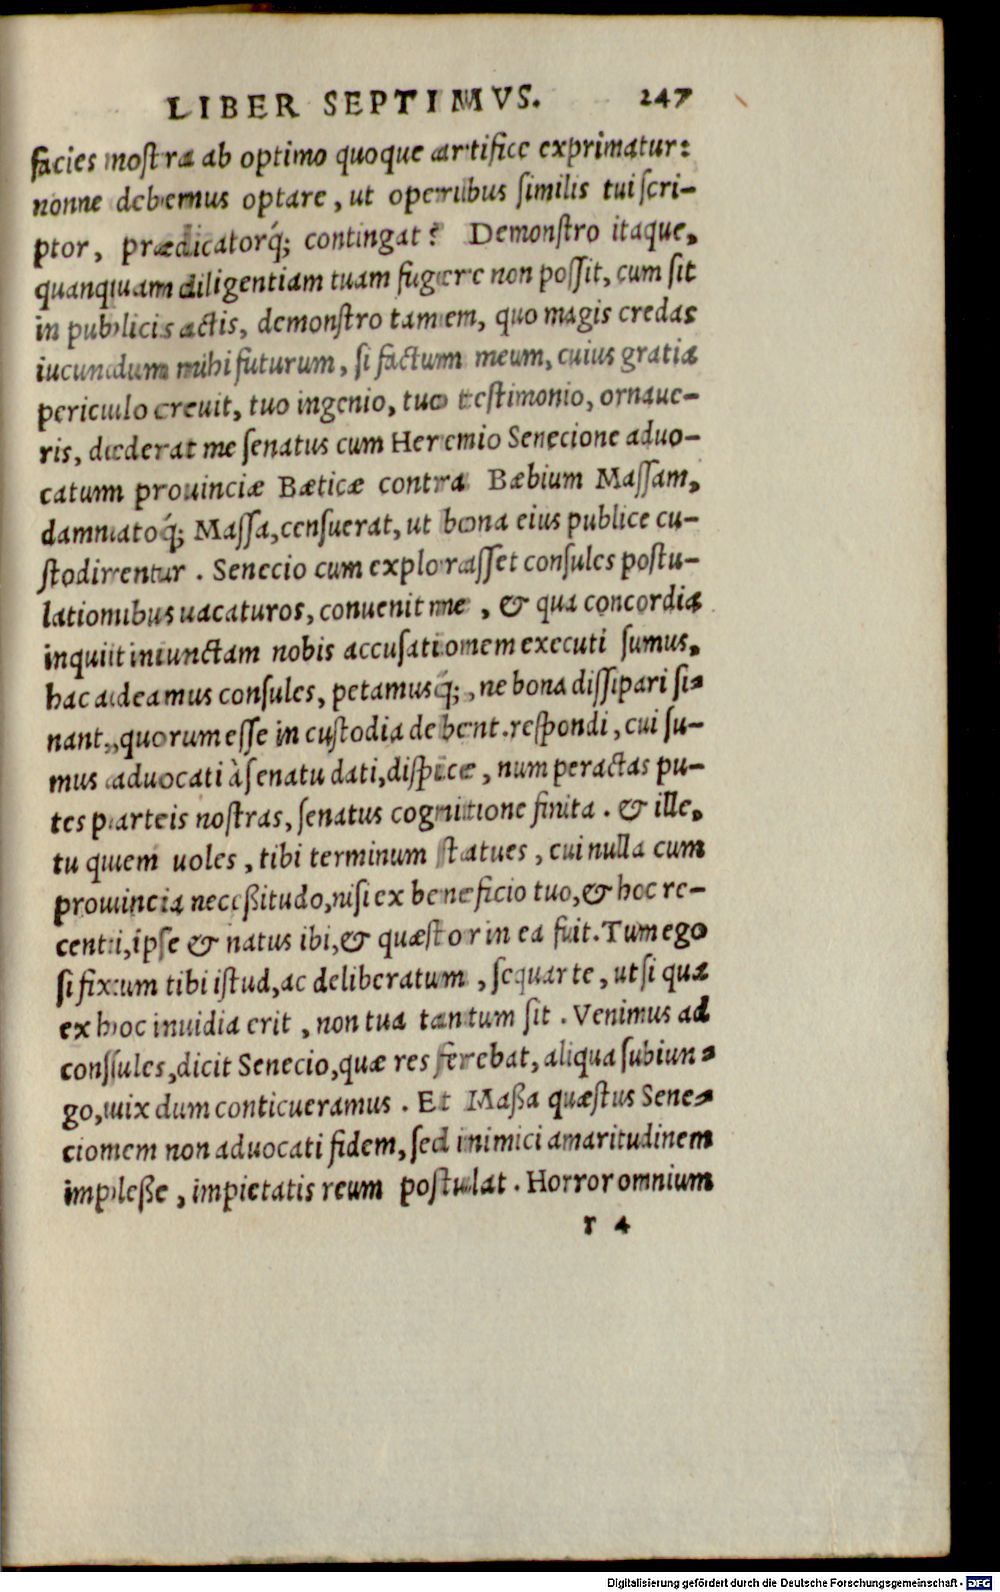 LIBER SEPTIMVS. 247
facies nostra ab optimo quoque artifice exprimatur:
nonne debemus optare, ut operibus similis tui scri-
ptor, prædicatorq́; contingat? Demonstro itaque,
quanquam diligentiam tuam fugere non possit, cum sit
in publicis actis, demonstro tamen, quo magis credas
iucundum mihi futurum, si factum meum, cuius gratia
periculo creuit, tuo ingenio, tuo testimonio, ornaue-
ris, dederat me senatus cum Heremio Senecione aduo-
catum prouinciæ Bæticæ contra Bæbium Massam,
damnatoq́; Massa, censuerat, ut bona eius publice cu-
stodirentur. Senecio cum explorasset consules postu-
lationibus uacaturos, conuenit me, & qua concordia
inquit iniunctam nobis accusationem executi sumus,
hac adeamus consules, petamusq́;, ne bona dissipari si-
nant, quorum esse in custodia debent. respondi, cui su-
mus aduocati à senatu dati, dispice, num peractas pu-
tes parteis nostras, senatus cognitione finita. & ille,
tu quem uoles, tibi terminum statues, cui nulla cum
prouincia neceßitudo, nisi ex beneficio tuo, & hoc re-
centi, ipse & natus ibi, & quæstor in ea fuit. Tum ego
si fixum tibi istud, ac deliberatum, sequar te, ut si qua
ex hoc inuidia erit, non tua tantum sit. Venimus ad
consules, dicit Senecio, quæ res ferebat, aliqua subiun-
go, uix dum conticueramus. Et Maßa quæstus Sene-
cionem non aduocati fidem, sed inimici amaritudinem
impleße, impietatis reum postulat. Horror omnium
r 4
Digitalisierung gefördert durch die Deutsche Forschungsgemeinschaft - DFG